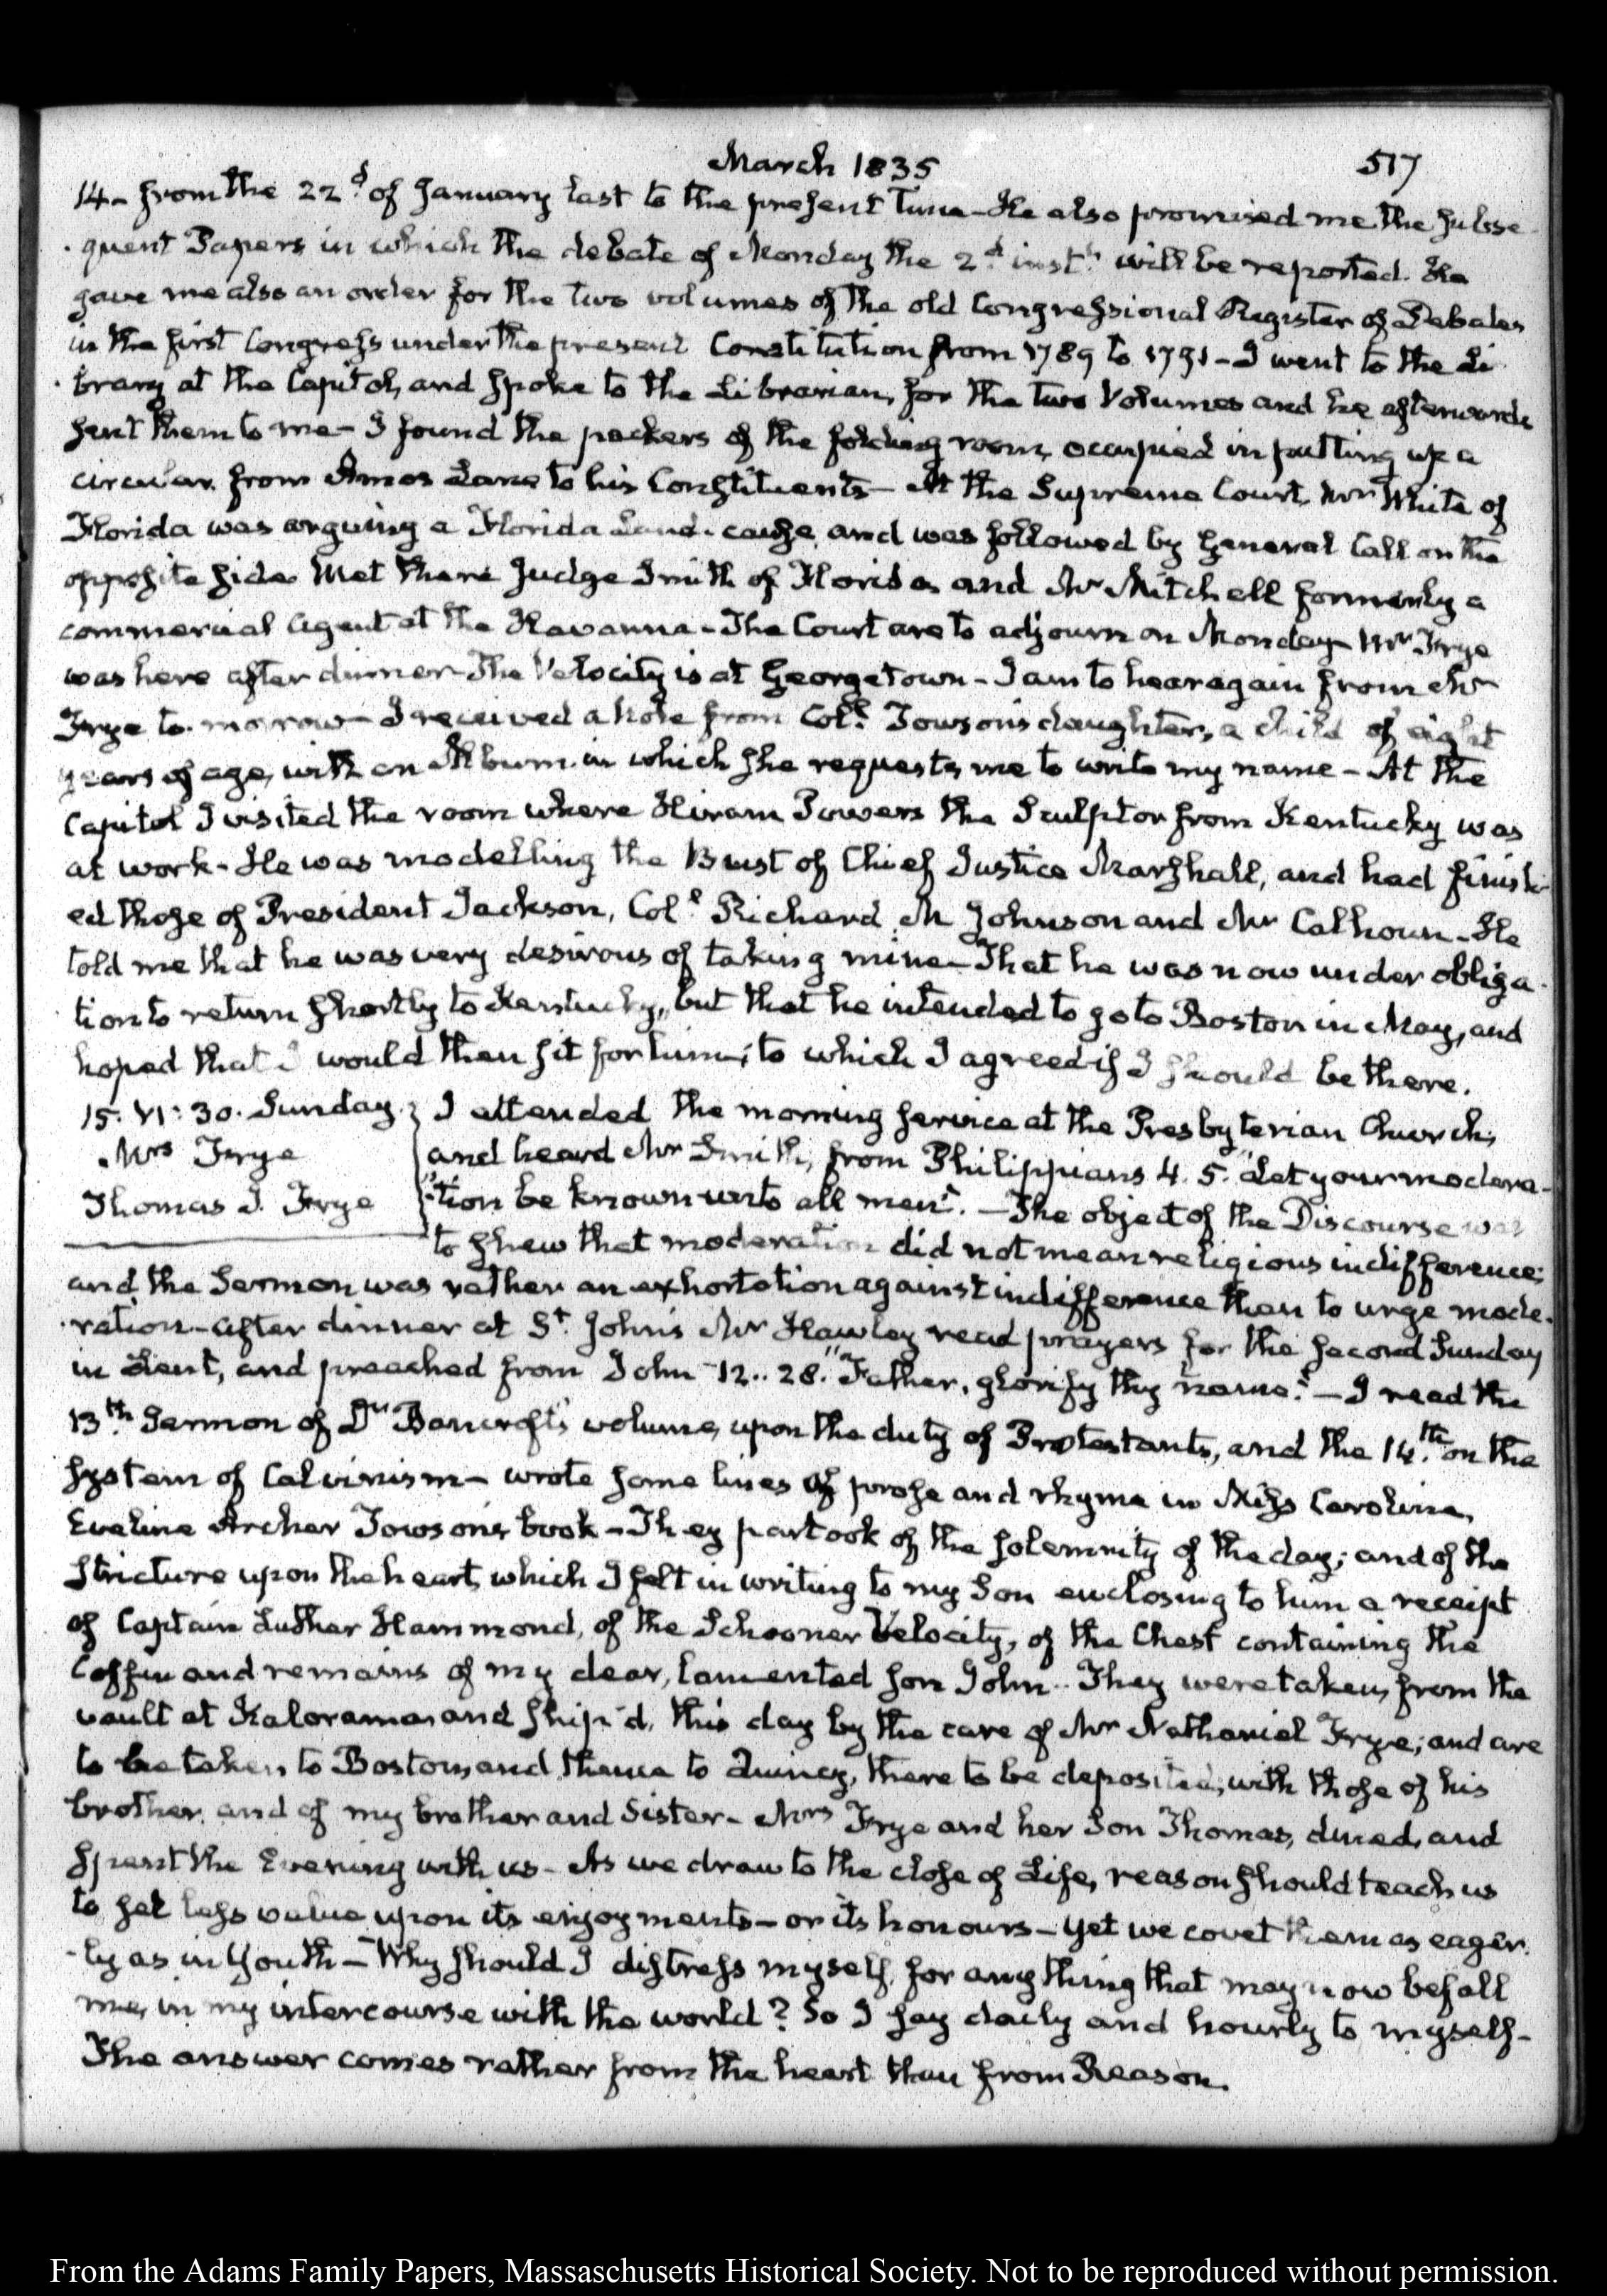 March 1835
517
14– from the 22d. of January last to the present Time– He also promised me the subse
quent Papers in which the debate of Monday the 2d. inst. will be reported. He
gave me also an order for the two volumes of the old Congressional Register of Debates
in the first Congress under the present Constitution from 1789 to 1791– I went to the Li
brary at the Capitol, and spoke to the Librarian, for the two Volumes and he afterwards
sent them to me– I found the packers of the folding room, occupied in putting up a
circular from Amos Lane to his Constituents– At the Supreme Court Mr White of
Florida was arguing a Florida Land-cause and was followed by General Call on the
opposite side. Met there Judge Smith of Florida and Mr Mitchell formerly a
commercial Agent at the Havanna– The Court are to adjourn on Monday– Mr Frye
was here after dinner– The Velocity is at Georgetown– I am to hear again from Mr
Frye to-morrow– I received a Note from Coll. Towson's daughter, a child of eight
years of age, with an Album in which she requests me to write my name– At the
Capitol I visited the room where Hiram Powers the Sculptor from Kentucky was
at work– He was modelling the Bust of Chief Justice Marshall, and had finish
ed those of President Jackson, Coll. Richard M Johnson and Mr Calhoun– He
told me that he was very desirous of taking mine– That he was now under obliga
tion to return shortly to Kentucky, but that he intended to go to Boston in May, and
hoped that I would then sit for him; to which I agreed if I should be there.
15. VI: 30. Sunday.
Mrs Frye
Thomas J. Frye
I attended the morning service at the Presbyterian Church,
and heard Mr Smith, from Philippians 4. 5. "Let your modera-
"tion be known unto all men".– The object of the Discourse was
to shew that moderation did not mean religious indifference;
and the Sermon was rather an exhortation against indifference than to urge mode
ration– After dinner at St. John's Mr Hawley read prayers for the second Sunday
in Lent, and preached from John 12.. 28. "Father, glorify thy name."– I read the
13th. Sermon of Dr Bancroft's volume, upon the duty of Protestants, and the 14th. on the
system of Calvinism– wrote some lines of prose and rhyme in Miss Caroline,
Eveline Archer Towson's book– They partook of the solemnity of the day; and of the
stricture upon the heart, which I felt in writing to my Son enclosing to him a receipt
of Captain Luther Hammond, of the Schooner Velocity, of the Chest containing the
Coffin and remains of my dear, lamented son John.. They were taken, from the
vault at Kalorama, and ship'd, this day by the care of Mr Nathaniel Frye; and are
to be taken to Boston, and thence to Quincy, there to be deposited, with those of his
brother and of my brother and Sister– Mrs Frye and her Son Thomas, dined, and
spent the Evening with us– As we draw to the close of Life, reason should teach us
to set less value upon its enjoyments– or its honours– Yet we covet them as eager
ly as in Youth– Why should I distress myself, for any thing that may now befall
me, in my intercourse with the world? So I say daily and hourly to myself–
The answer comes rather from the heart than from Reason.
From the Adams Family Papers, Massachusetts Historical Society. Not to be reproduced without permission.